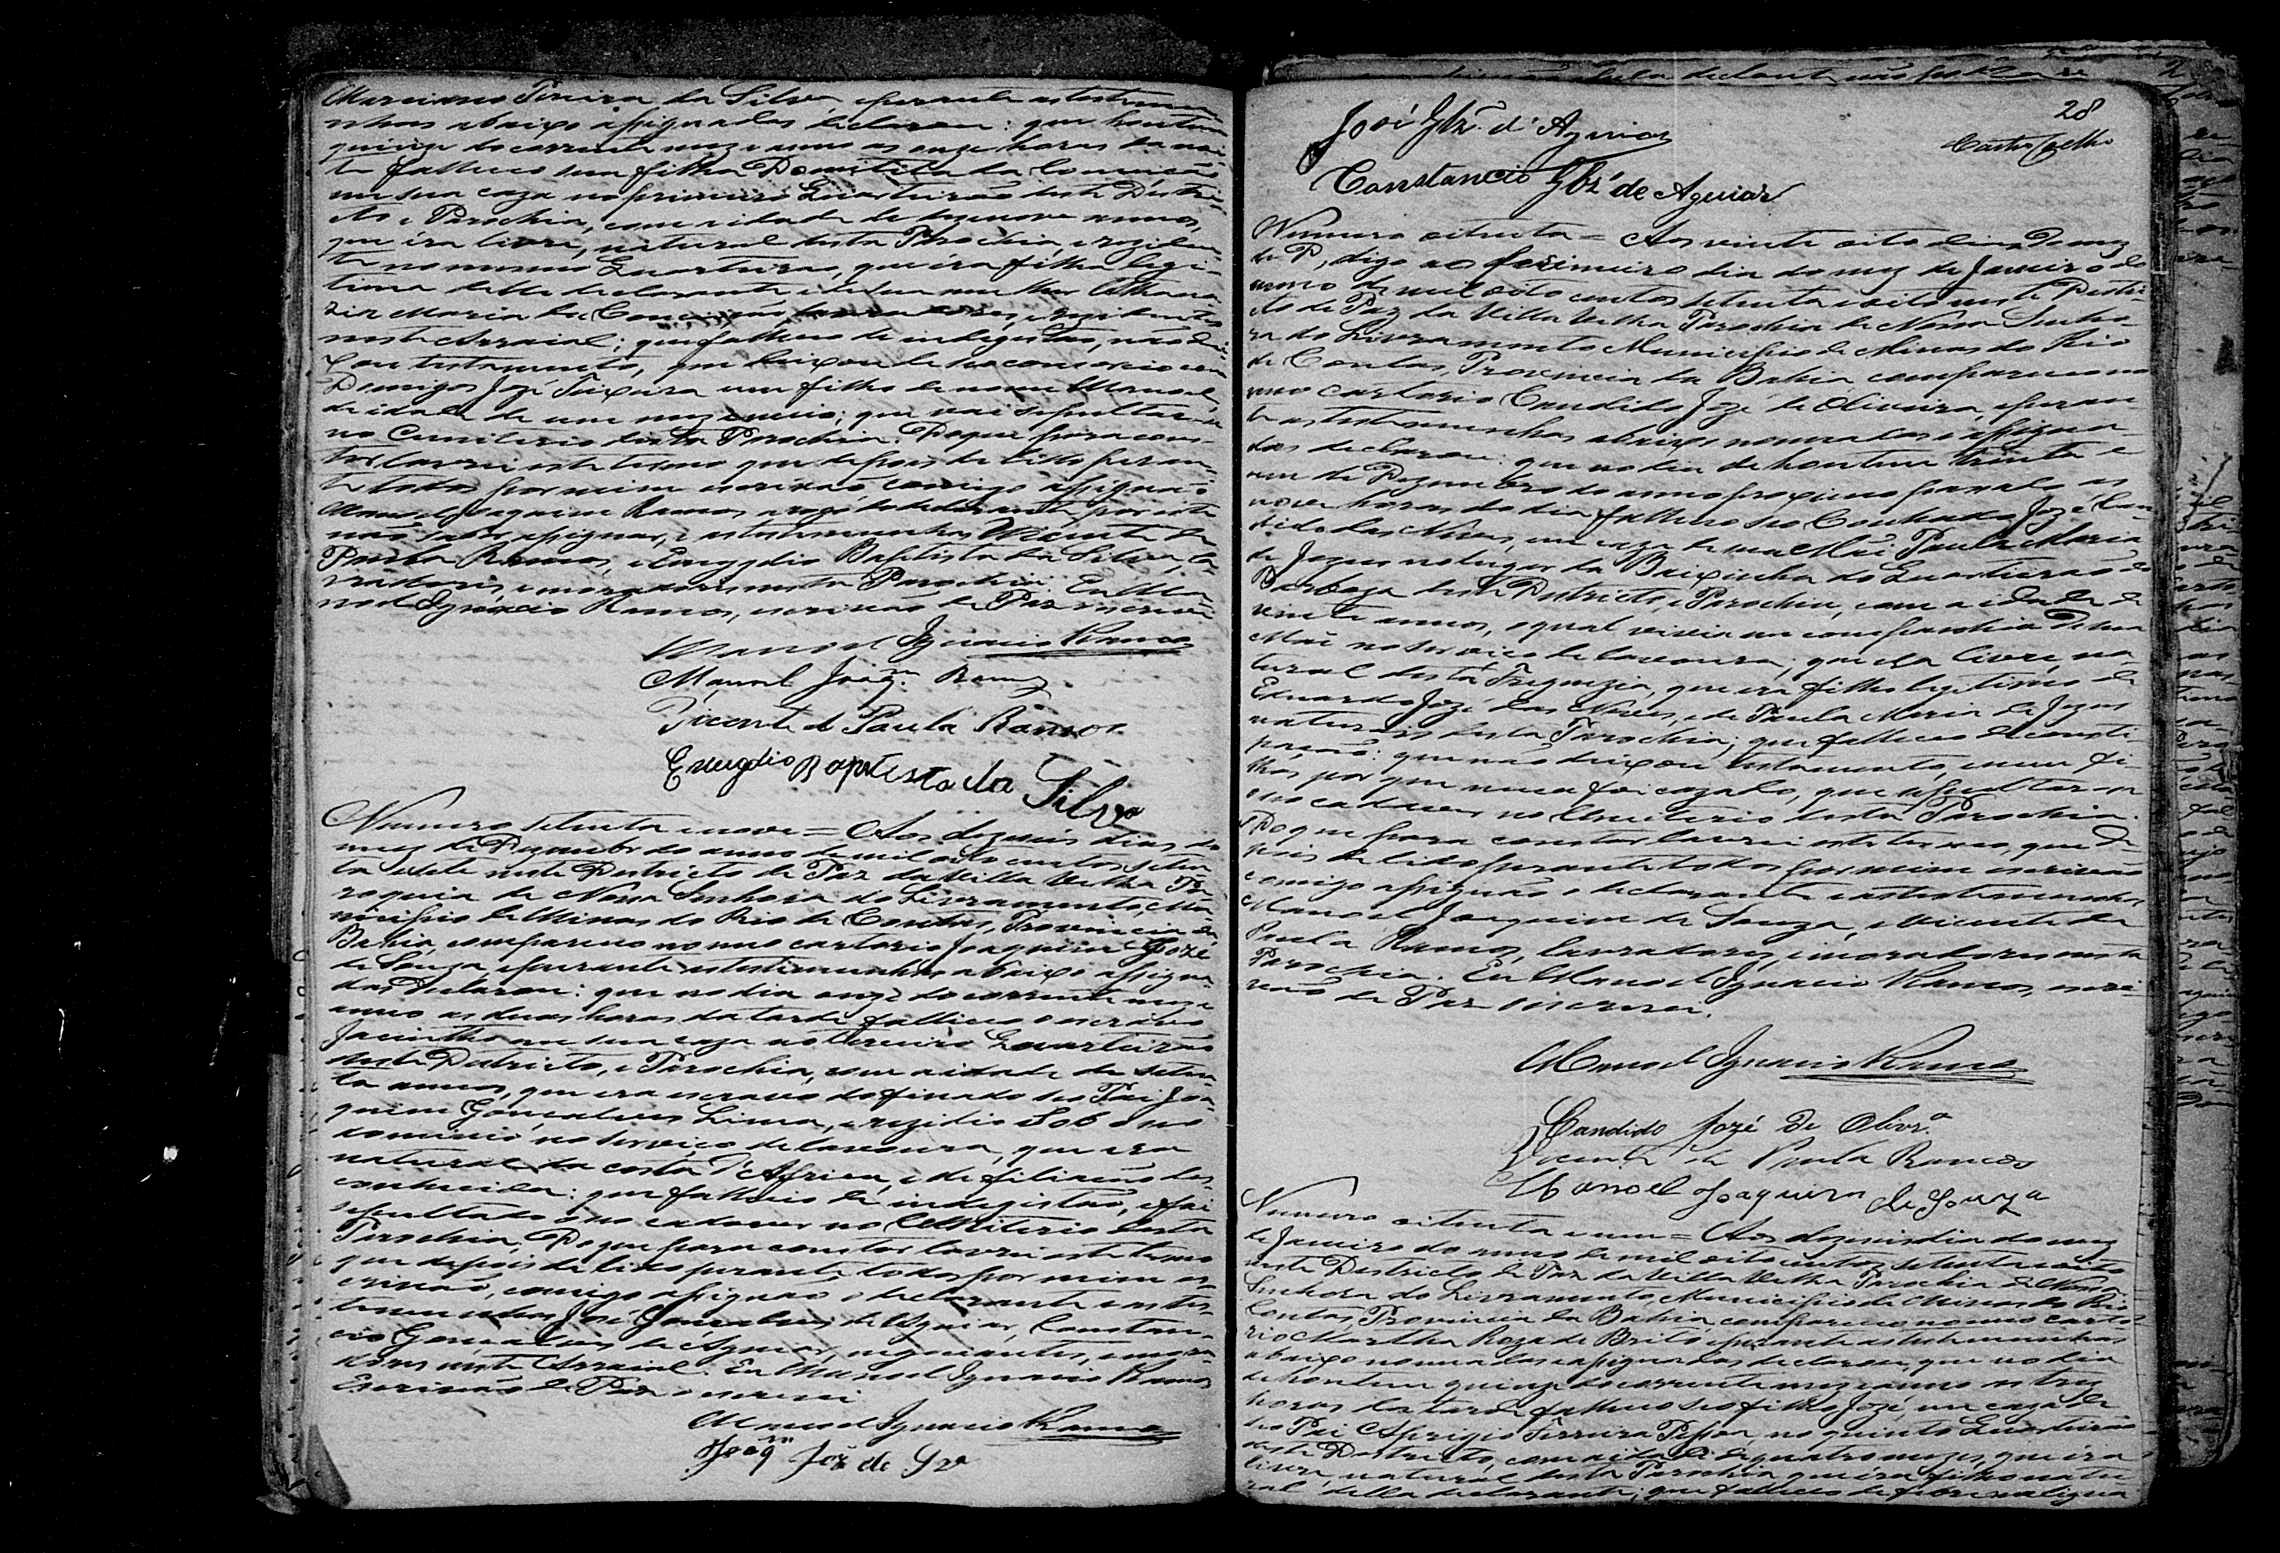 Marciano Pereira da Silva, e perante as testemu-
nhas abaixo assignadas declarou: que hontem
quinze do corrente mez e anno as onze horas da noi-
te falleceo sua filha Domitilla da Conceição
em sua caza no primeiro Quarteirão deste Distri-
cto e Parochia, com a idade de dezenove annos,
que éra livre, natural desta Parochia, e reziden-
te no mesmo Quarteirão, que éra filha legi-
tima delle declarante e de sua mulher
Maria da Conceição, lavradores, e rezidentes
neste Arraial; que falleceo de indigestão, não dei-
xou testamento, que deixou de seo consorcio com
Domigos Jozé Teixeira um filho de nome Manoel,
de idade de um mez e meio; que vai sepultar-se
no Cemiterio desta Parochia. Do que para cons-
tar lavrei este termo que depois de lido peran-
te todos por mim escrivão comigo assignão
Manoel Joaquim Ramos, a rogo do declarante, por este
não saber assignar, e as testemunhas Vicente de
Paula Ramos, e Emygdio Baptista da Silva, la-
vradores, e moradores nesta Parochia. Eu Ma-
noel Ignacio Ramos, escrivão de Paz o escrevi
Manoel Ignacio Ramos
Manoel Joaqm. Ramos
Vicente de Paula Ramos
Emygdio Baptista da Silva
Numero setenta e nove = Aos dezeseis dias do
mez de Dezembro do anno de mil oito centos seten-
ta e sete neste Districto de Paz da Villa Velha Pa-
roquia de Nossa Senhora do Livramento, Mu-
nicipio de Minas do Rio de Contas, Provincia da
Bahia, compareceo no meo cartorio Joaquim Jozé
de Souza, e perante as testemunhas abaixo assigna-
das declarou: que no dia onze do corrente mez e
anno as duas horas da tarde falleceo o escravo
Jacintho em sua caza no terceiro Quarteirão
deste Districto, e Parochia, com a idade de seten-
ta annos, que era escravo do finado seo Pai Joa-
quim Gonçalves Lima, e rezidio sob o seo
dominio no serviço de lavoura, que era
natural da costa d'Africa, e de filiação des-
conhecida: que falleceo de indigestão, e foi
sepultado o seo cadaver no Cemiterio desta
Parochia. Do que para constar lavrei este termo
que depois de lido perante todos por mim es-
crivão, comigo assignão o declarante e as tes-
temunhas José Gonçalves de Aguiar, Constan-
cio Gonçalves de Aguiar, negociantes, e mora-
dores neste Arraial. Eu Manoel Ignacio Ramos
Escrivão de Paz o escrevi
Manoel Ignacio Ramos
Joaqm Joz de Sza
28
José Glz. d'Aguiar
Castro Coelho
Constancio Glz' de Aguiar
Numero oitenta = Aos vinte oito dias do mez
de P, digo ao primeiro dia do mez de Janeiro do
anno de mil oito centos setenta e oito neste Distri-
cto de Paz da Villa Velha Parochia de Nossa Senho-
ra do Livramento Municipio de Minas do Rio
de Contas, Provincia da Bahia compareceo no
meo cartorio Candido Jozé de Oliveira, e peran-
te as testemunhas abaixo nomeadas e assigna-
das declarou: que no dia de hontem trinta e
um de Dezembro do anno proximo passado as
nove horas do dia falleceo seo Cunhado José Can-
dido das Neves, em caza de sua Mãi Paula Maria
de Jezus no lugar da Baixinha do Quarteirão do
Barboza deste Districto, e Parochia, com a idade de
vinte annos, o qual vivia em companhia de sua
Mãi no serviço de lavoura; que era livre, na-
tural desta Freguezia, que era filho legitimo de
Eduardo Jozé das Neves, e de Paula Maria de Jezus
naturaes desta Parochia; que falleceo de consti-
pação: que não deixou testamento, e nem fi-
lhos por que nunca foi cazado, que sepultar-se
o seo cadaver no Cemiterio desta Parochia.
Do que para constar lavrei este termo, que de-
pois de lido perante todos por mim escrivão
comigo assignão o declarante e as testemunhas
Manoel Joaquim de Souza, e Vicente de
Paula Ramos, lavradores, e moradores nesta
Parochia. Eu Manoel Ignacio Ramos, escri-
vão de Paz o escrevi.
Manoel Ignacio Ramos
Candido Jozé de Olivra.
Vicente de Paula Ramos
Manoel Joaquim de Souza
Numero oitenta e um = Aos dezeseis dia do mez
de Janeiro do anno de mil oito centos setenta e oito
neste Districto de Paz da Villa Velha Parochia de Nossa
Senhora do Livramento, Municipio de Minas do Rio
Contas, Provincia da Bahia compareceo no meo carto-
rio Martha Roza de Brito, e perante as testemunhas
abaixo nomeadas e assignadas declarou, que no dia
de hontem quinze do corrente mez e anno as tres
horas da tarde falleceo seo filho Jozé, em caza de
seo Pai Aprigio Ferreira Pessoa, no quinto Quarteirão
deste Districto, com a idade de quatro mezes, que éra
livre, natural desta Parochia que éra filho natu-
ral della declarante; que falleceo de febre maligna